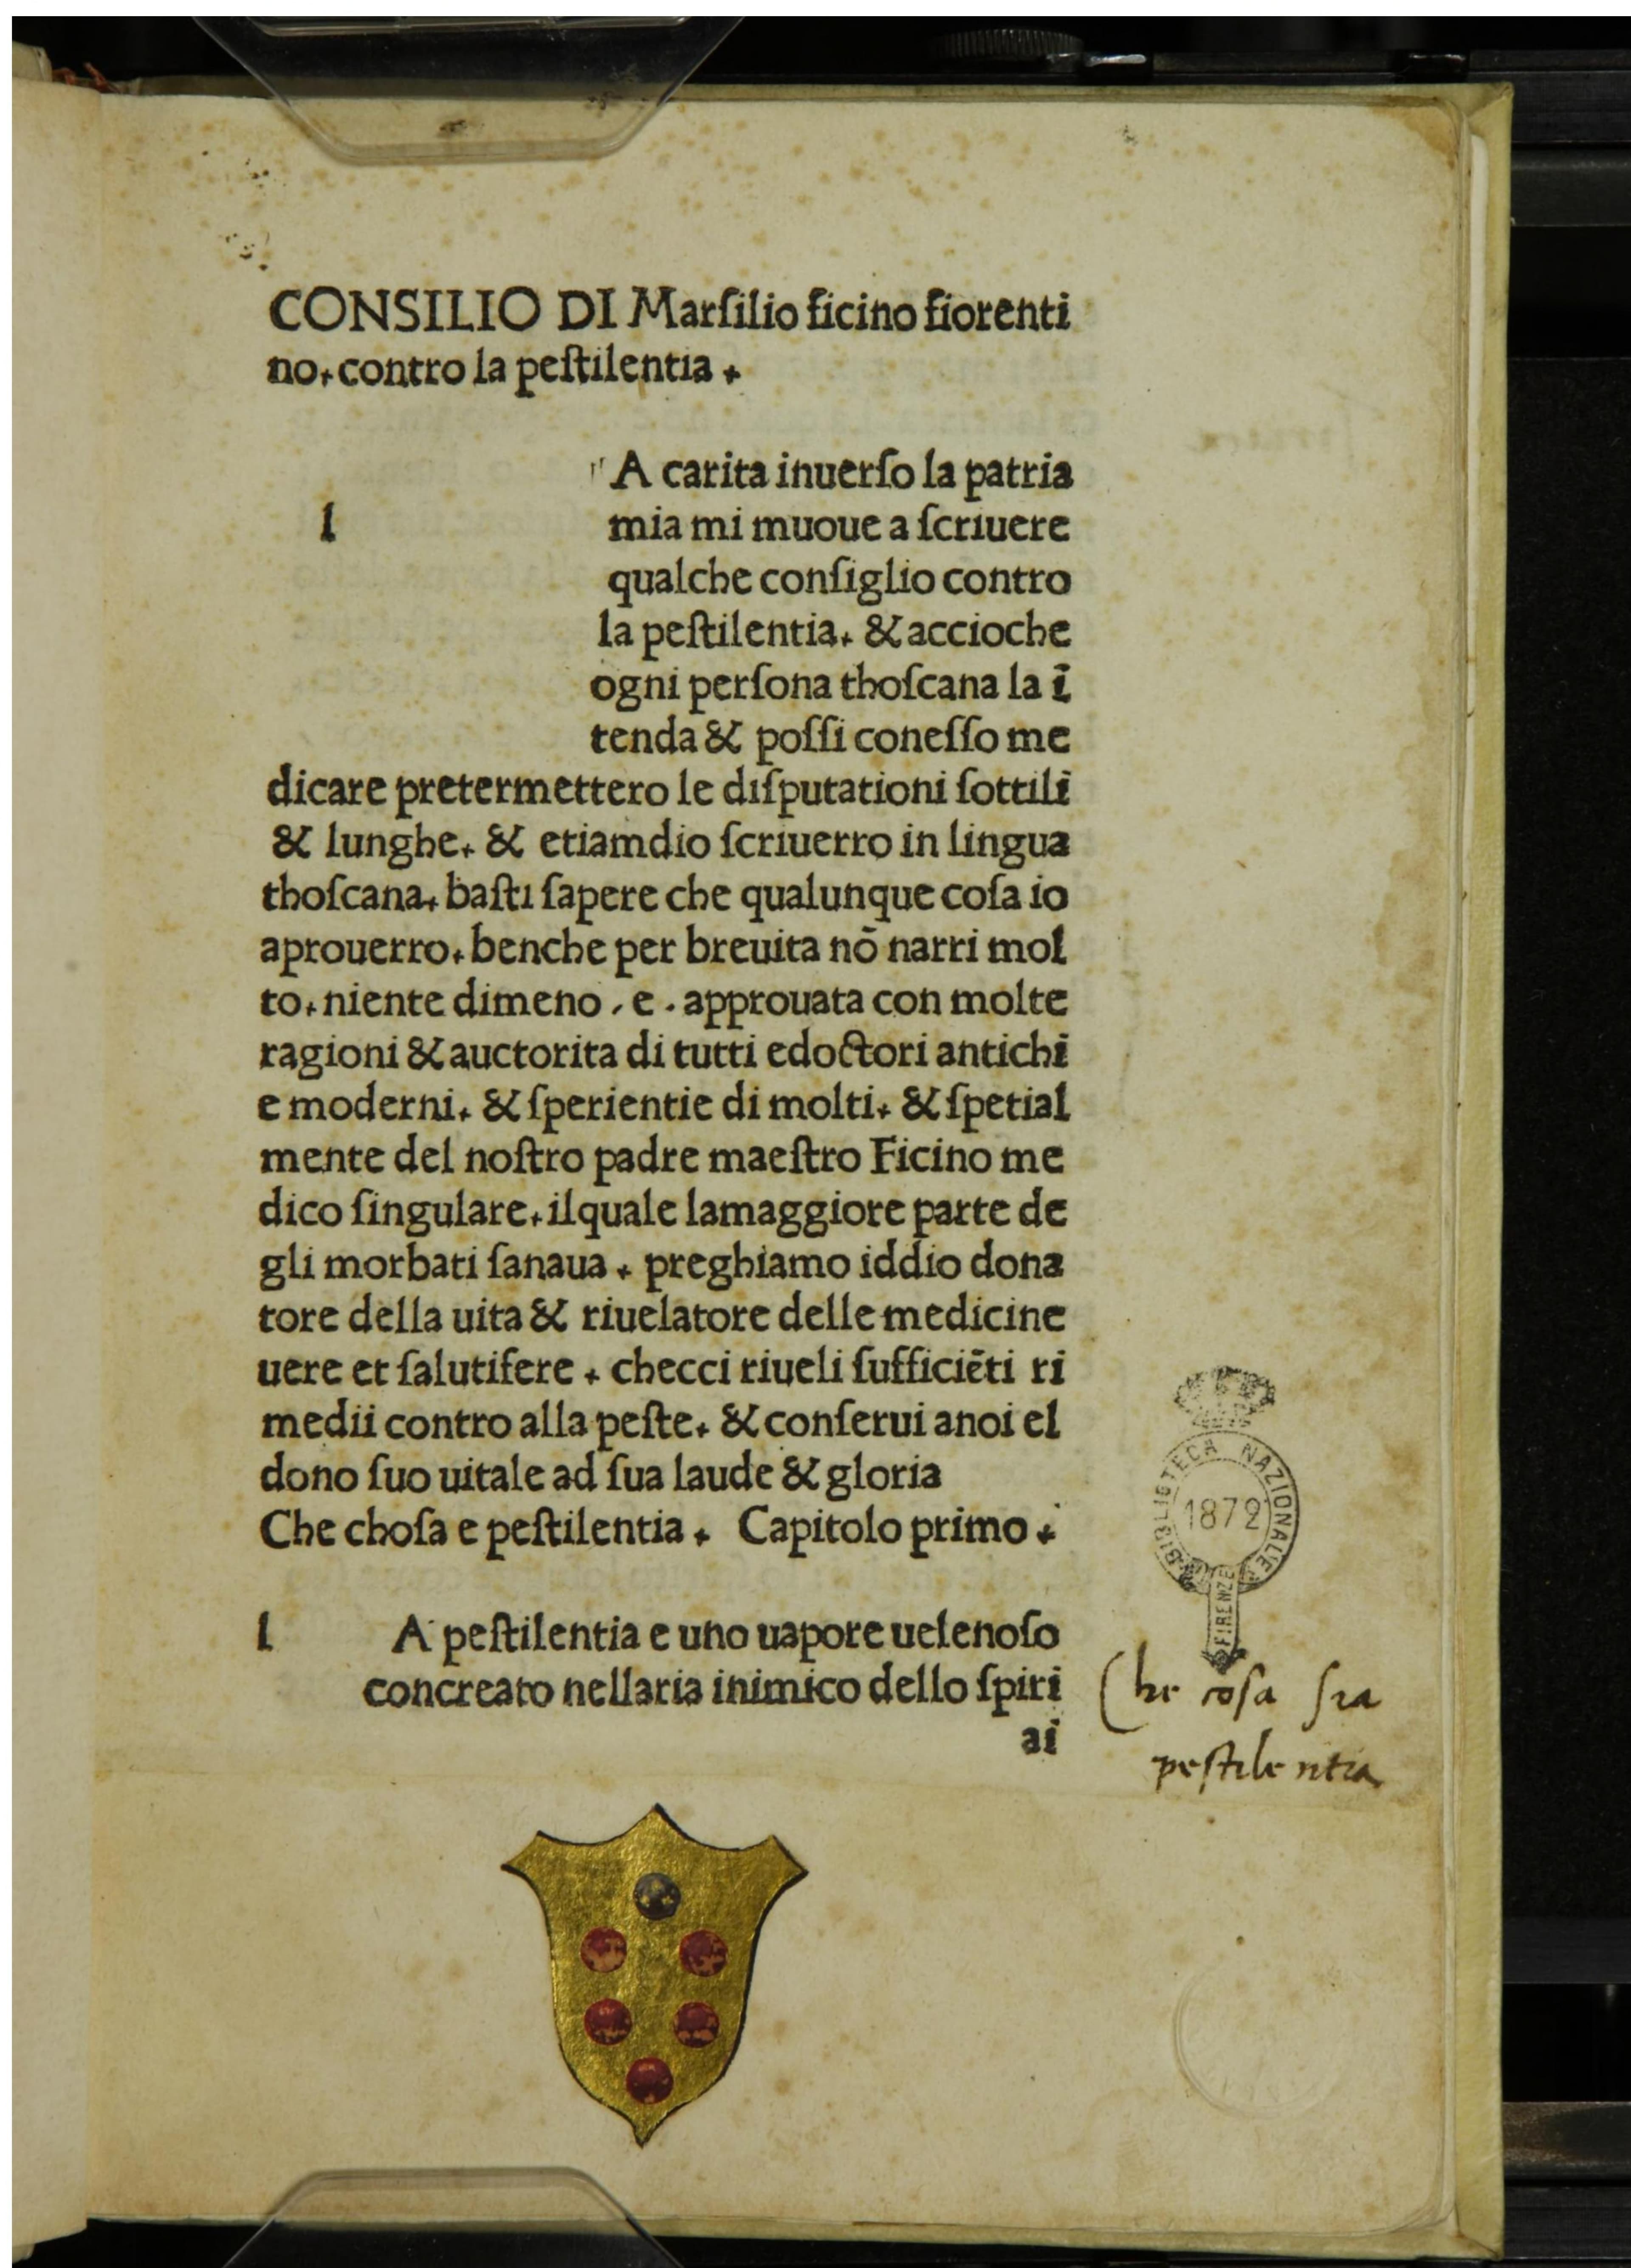 CONSILIO DI Marſilio ficino fiorenti
no. contro la peſtilentia.
A carita inuerſo la patria
l mia mi muoue a ſcriuere
qualche conſiglio contro
la peſtilentia. & accioche
ogni perſona thoſcana la ī
tenda & poſſi coneſſo me
dicare pretermettero le diſputationi ſottili
& lunghe. & etiamdio ſcriuerro in lingua
thoſcana. baſti ſapere che qualunque coſa io
aprouerro. benche per breuita nō narri mol
to. niente dimeno . e . approuata con molte
ragioni & auctorita di tutti edoctori antichi
e moderni. & ſperientie di molti. & ſpetial
mente del noſtro padre maeſtro Ficino me
dico ſingulare. ilquale lamaggiore parte de
gli morbati ſanaua . preghiamo iddio dona
tore della uita & riuelatore delle medicine
uere et ſalutifere . checci riueli ſufficiēti ri
medii contro alla peſte. & conſerui anoi el
dono ſuo uitale ad ſua laude & gloria
Che choſa e peſtilentia. Capitolo primo.
l A peſtilentia e uno uapore uelenoſo
concreato nellaria inimico dello ſpiri
ai
Che coſa ſia
peſtilentia
BIBLIOTECA NAZIONALE
1872
FIRENZE